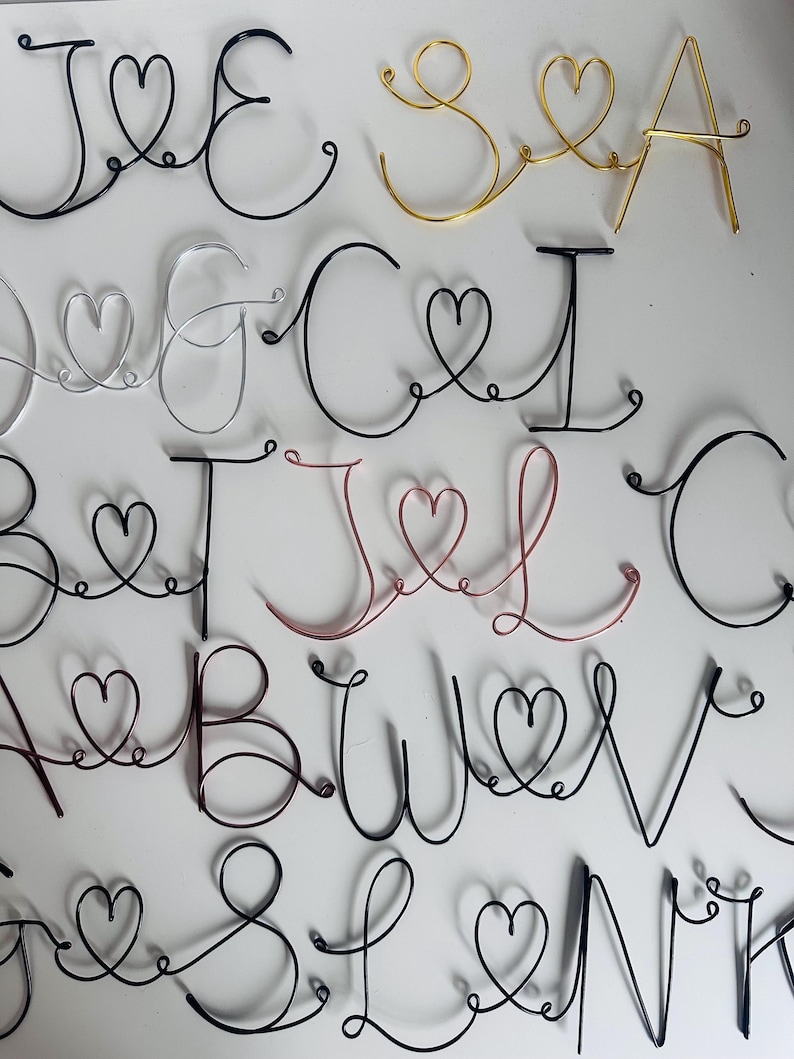 J♡E S♡A
♡G C♡I
B♡T J♡L C
A♡B W♡V
G♡S L♡N